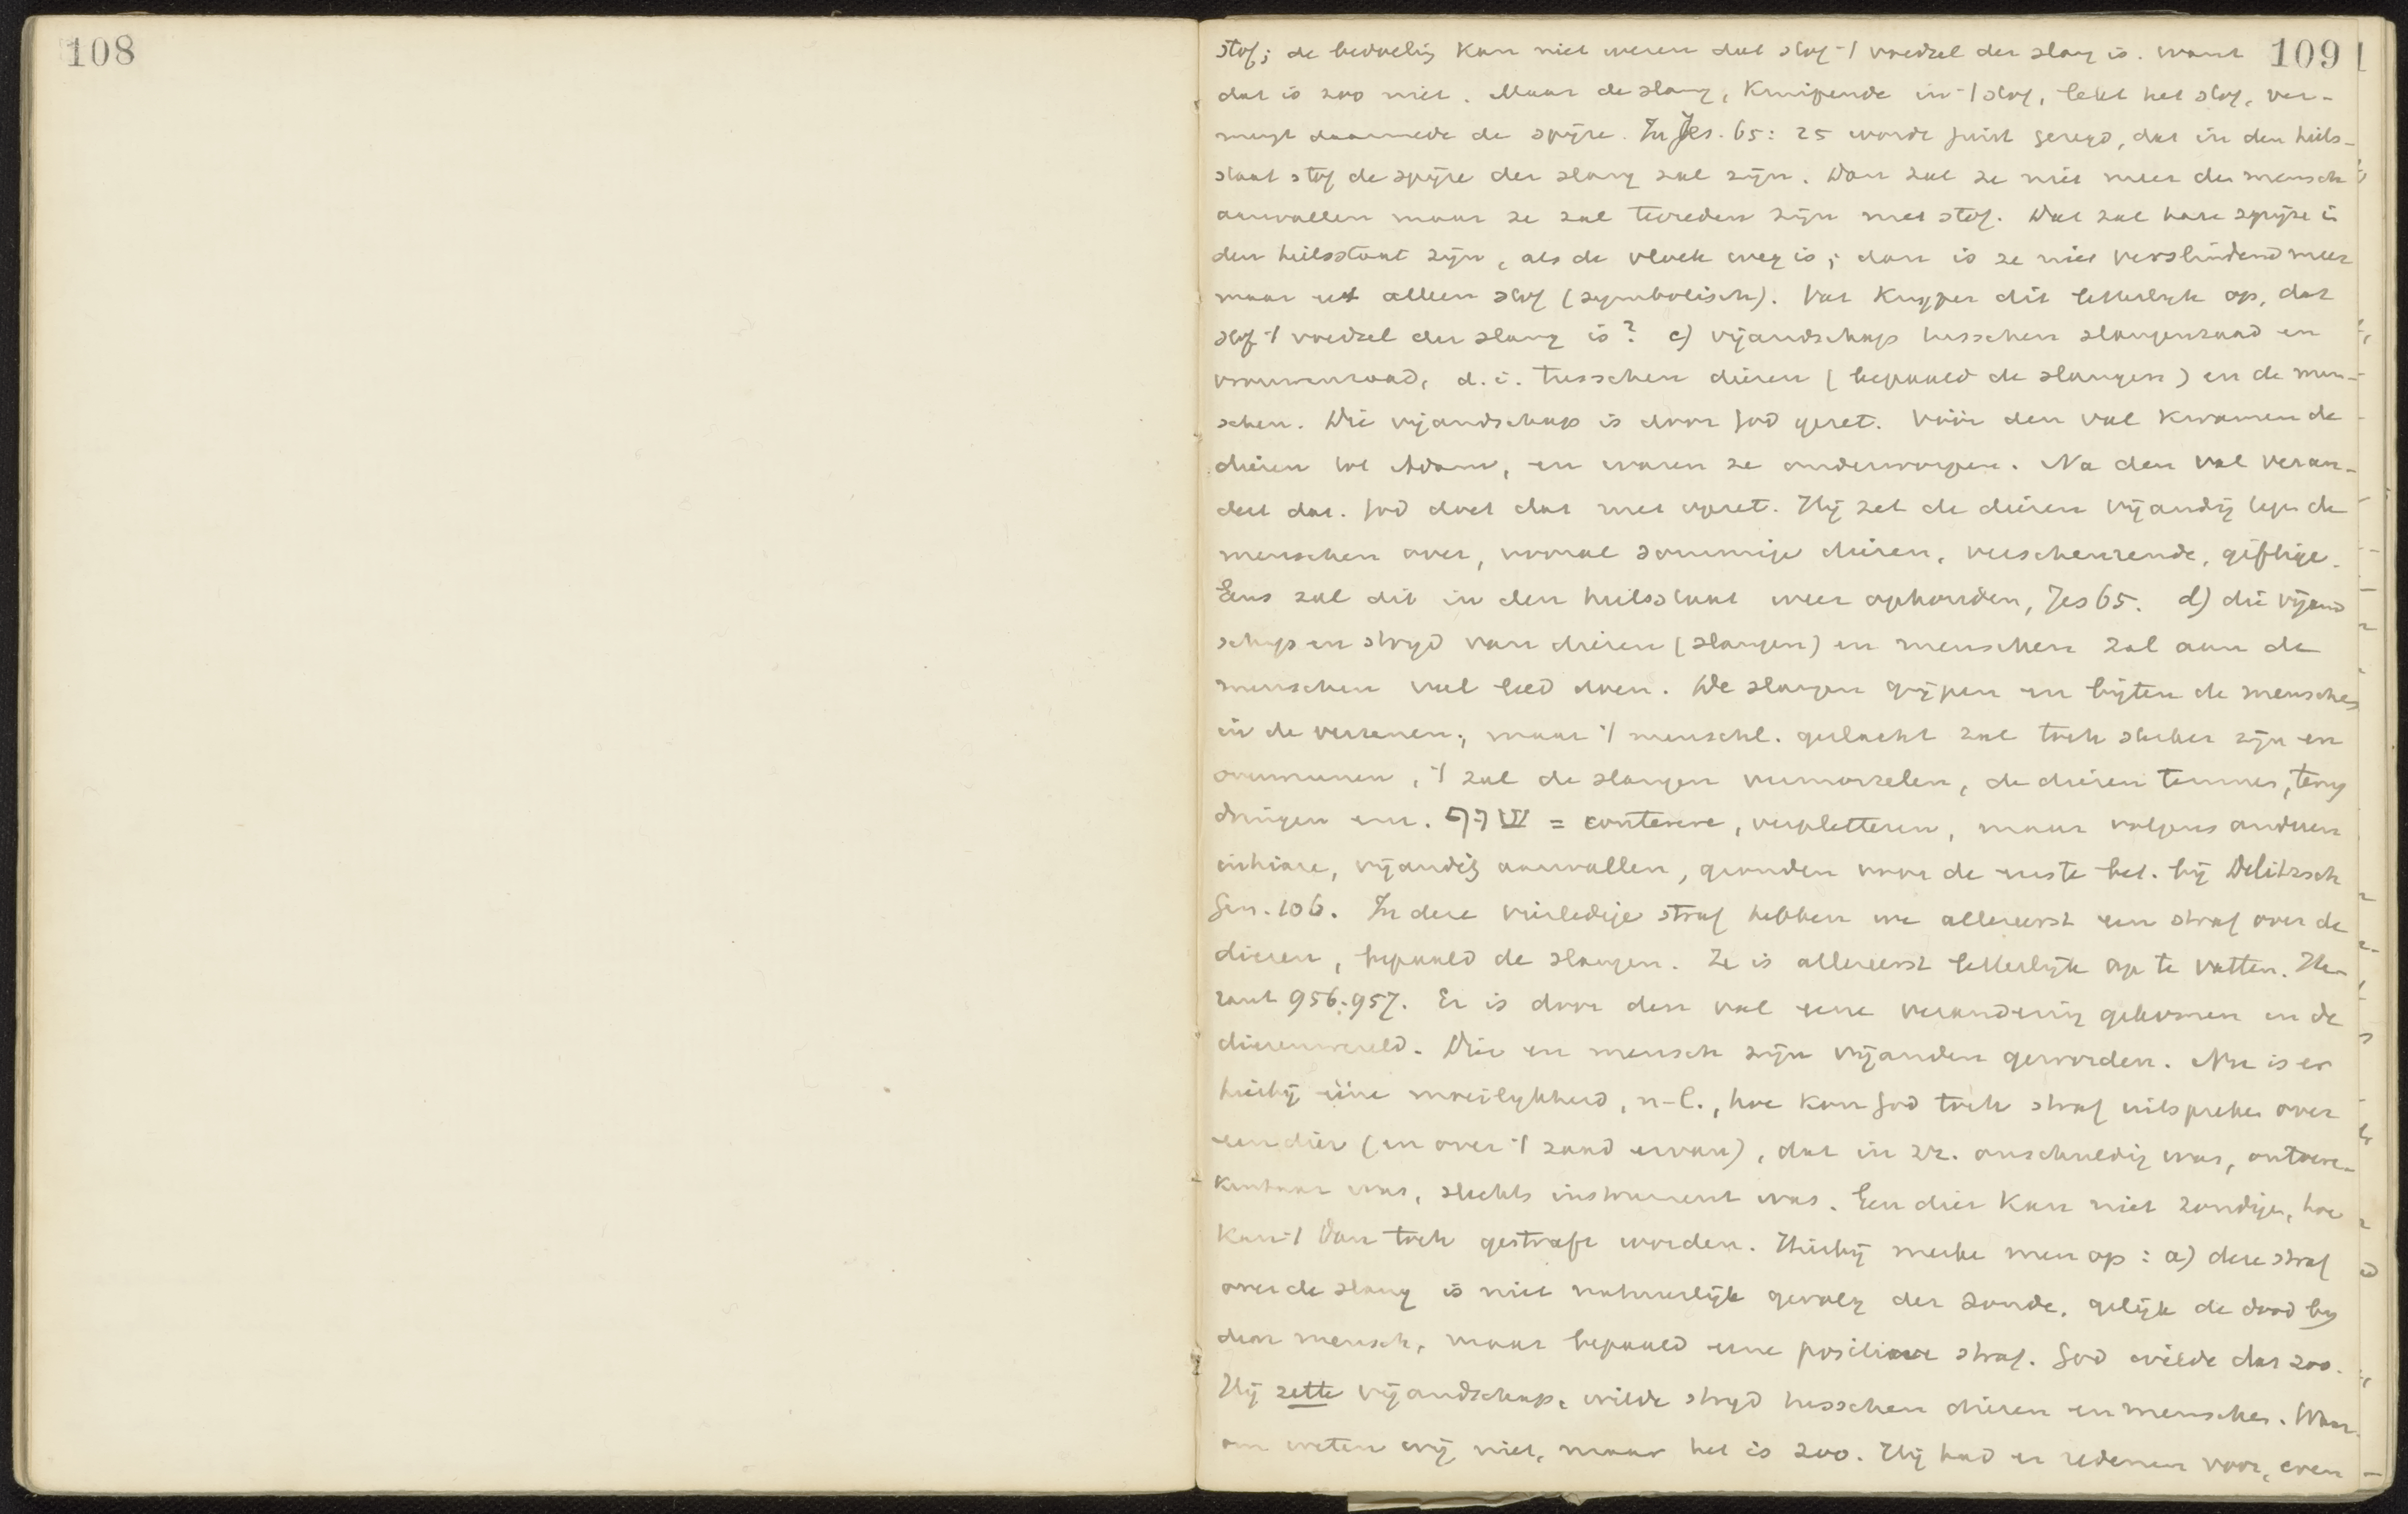 108
109
stof; de bedoeling kan niet wezen dat stof 't voedsel der slang is. want
dat is zoo niet. Maar de slang, kruipende in 't stof, lekt het stof, ver-
mengt daarmede de spijze. In Jes. 65: 25 wordt juist gezegd, dat in den heils-
staat stof de spijze der slang zal zijn. Dan zal ze niet meer den mensch
aanvallen maar ze zal tevreden zijn met stof. Dat zal hare spijze in
den heilsstaat zijn, als de vloek weg is; dan is ze niet verslindend meer
maar eet alleen stof (symbolisch). Vat Kuyper dit letterlijk op, dat
stof 't voedsel der slang is? c) vijandschap tusschen slangenzaad en
vrouwenzaad, d.i. tusschen dieren (bepaald de slangen) en de men-
schen. Die vijandschap is door God gezet. Vóór den val kwamen de
dieren tot Adam, en waren ze onderworpen. Na den val veran-
dert dat. God doet dat met opzet. Hij zet de dieren vijandig tegen de
menschen over, vooral sommige dieren, verscheurende, giftige.
Eens zal dit in den heilsstaat weer ophouden, Jes 65. d) die vijand
schap en strijd van dieren (slangen) en menschen zal aan de
menschen veel leed doen. De slangen grijpen en bijten de menschen
in de verzenen; maar 't menschl. geslacht zal toch sterker zijn en
overwinnen, 't zal de slangen vermorzelen, de dieren temmen, terug
dringen enz. שוף = conterere, verpletteren, maar volgens anderen
inhiare, vijandig aanvallen, gronden voor de eerste bet. bij Delitzsch
Gen. 106. In deze vierledige straf hebben we allereerst een straf over de
dieren, bepaald de slangen. Ze is allereerst letterlijk op te vatten. He-
raut 956.957. Er is door den val eene verandering gekomen in de
dierenwereld. Dier en mensch zijn vijanden geworden. Nu is er
hierbij ééne moeilijkheid, n-l., hoe kan God toch straf uitspreken over
een dier (en over 't zaad ervan), dat in zz. onschuldig was, ontoere-
kenbaar was, slechts instrument was. Een dier kan niet zondigen, hoe
kan 't dan toch gestraft worden. Hierbij merke men op: a) deze straf
over de slang is niet natuurlijk gevolg der zonde, gelijk de dood bij
den mensch, maar bepaald eene positieve straf. God wilde dat zoo.
Hij zette vijandschap, wilde strijd tusschen dieren en menschen. Waar-
om weten wij niet, maar het is zoo. Hij had er redenen voor, even